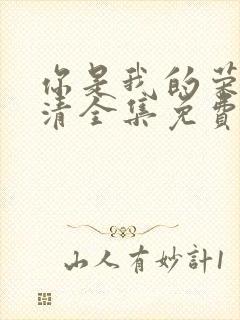 你是我的荣
清全集免費
山人有妙計1